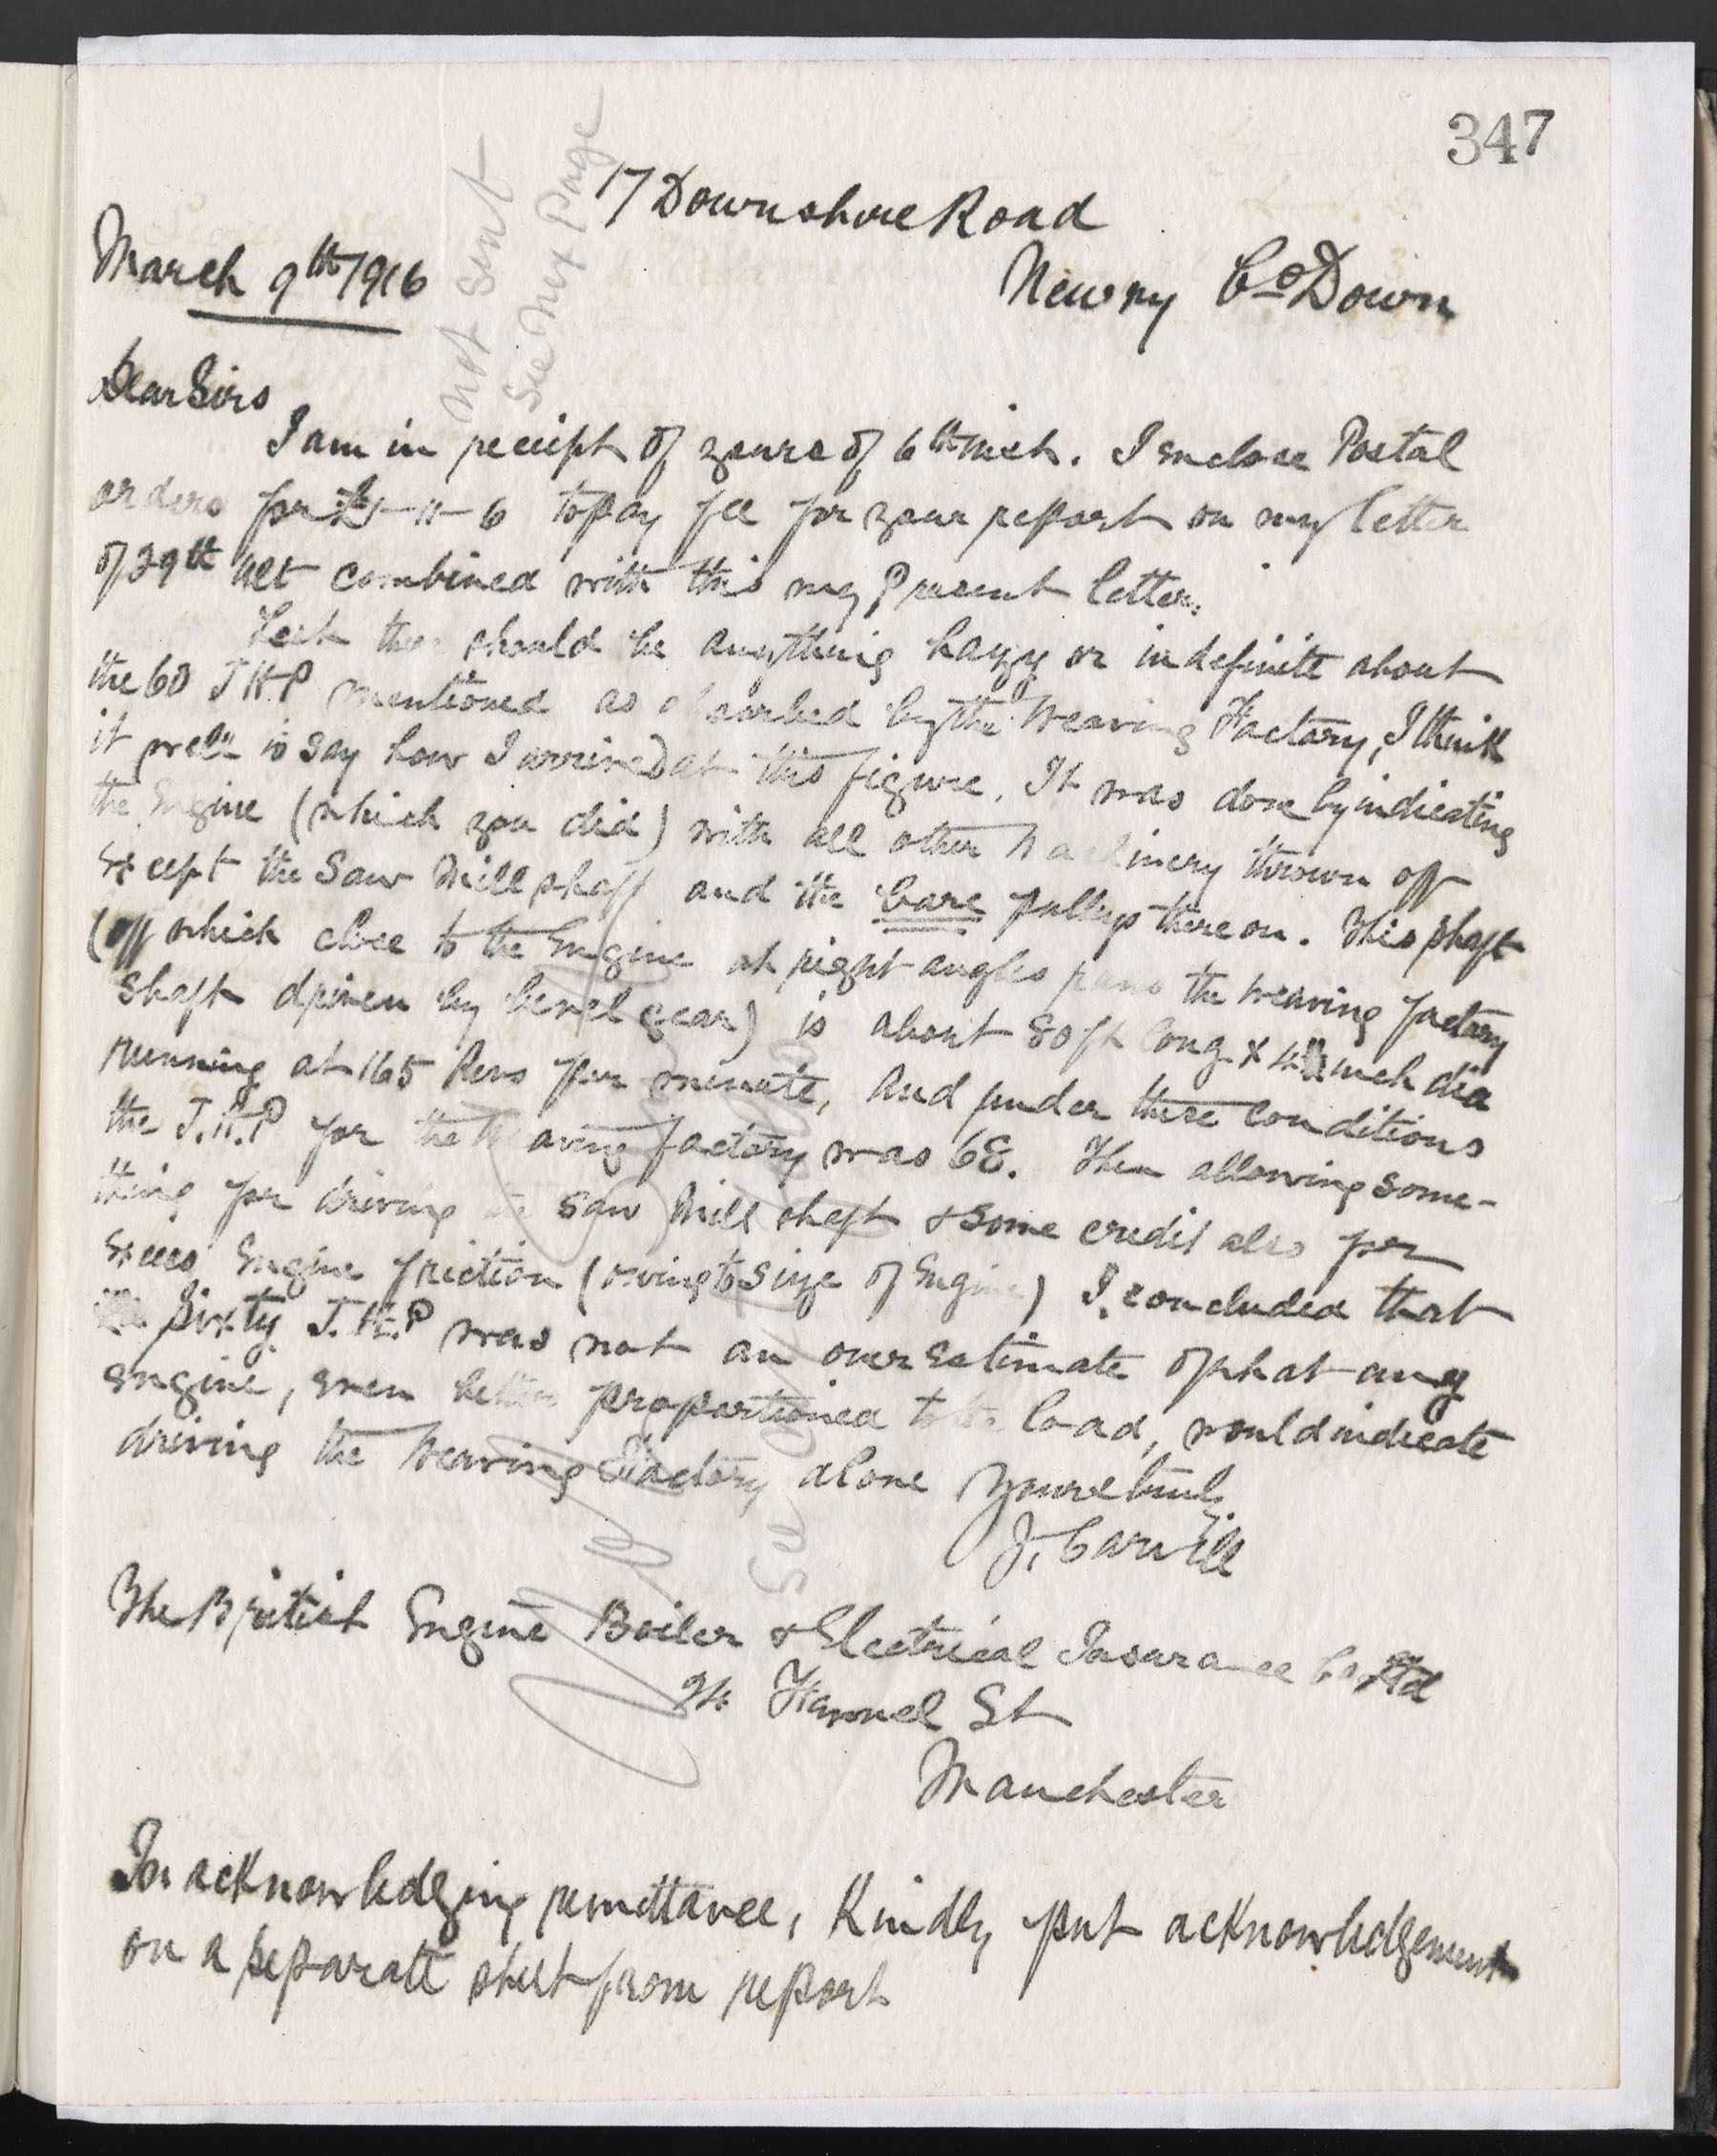 347
17 Downshire Road
March 9th 1916
Newry Co Down
not sent
see next Page
Dear Sirs
I am in receipt of yours of 6th inst. I enclose Postal
orders for £1-11-6 to pay fee for your report on my letter
of 29th ult combined with this my Present letter.
Lest there should be anything hazy or indefinite about
the 60 I.H.P mentioned as absorbed by the Weaving Factory, I think
it well to say how I arrived at this figure. It was done by indicating
the Engine (which you did) with all other Machinery thrown off
Except the Saw Mill shaft and the bare pulleys thereon. This shaft
(off which close to the Engine at right angles runs the Weaving factory
shaft driven by bevel gear) is about 80 ft long x 4 inch dia
running at 165 Revs per minute, And under these conditions
the I.H.P for the Weaving factory was 68. Then allowing some-
thing for driving the Saw Mill shaft & some credit also for
Excess Engine friction (owing to size of Engine) I concluded that
Sixty I.H.P was not an over estimate of what any
engine, even better proportioned to its load, would indicate
driving the Weaving Factory alone
Yours truly
J. Carvill
The British Engine Boiler & Electrical Insurance Co Ltd
24 Fennel St
Manchester
In acknowledging remittance, Kindly put acknowledgement
on a separate sheet from report